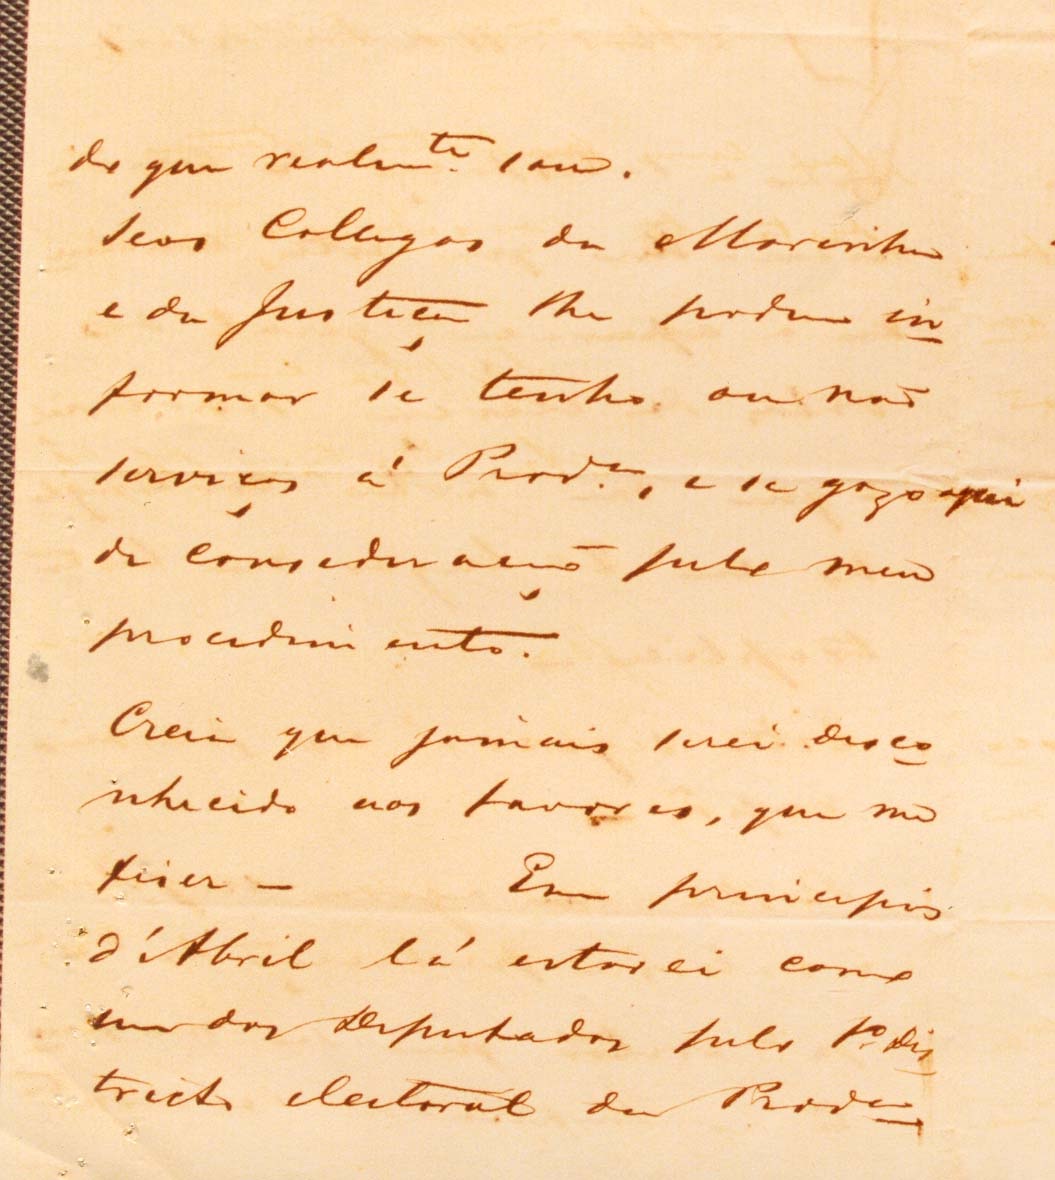 do que realmte. sou.
Seos Collegas da Marinha
e da Justiça lhe podem in
formar se tenho ou não
serviços á Prova., e se gozo aqui
de consideração pelo meu
procedimento.
Creia que jamais serei desco
nhecido aos favores, que me
fiser – Em principios
d'Abril lá estarei como
um dos Deputados pelo 1o. Dis
tricto eleitoral da Prova